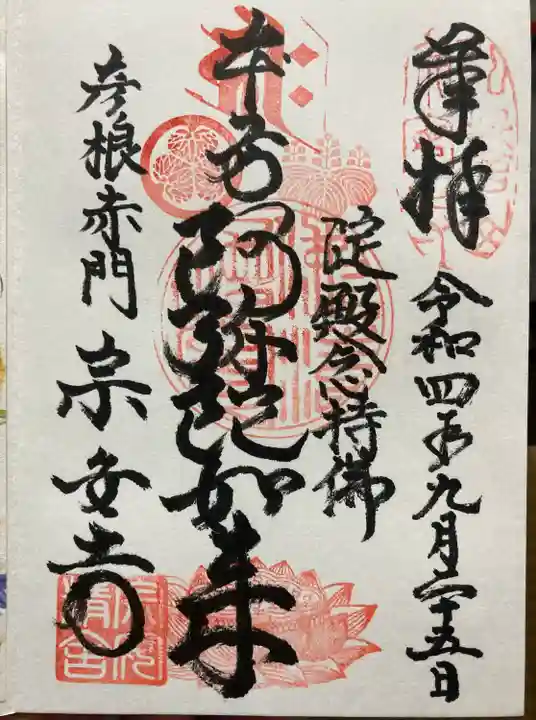 奉拝
令和四年九月二十五日
淀殿念持佛
本尊
阿弥陀如来
彦根赤門
宗安寺